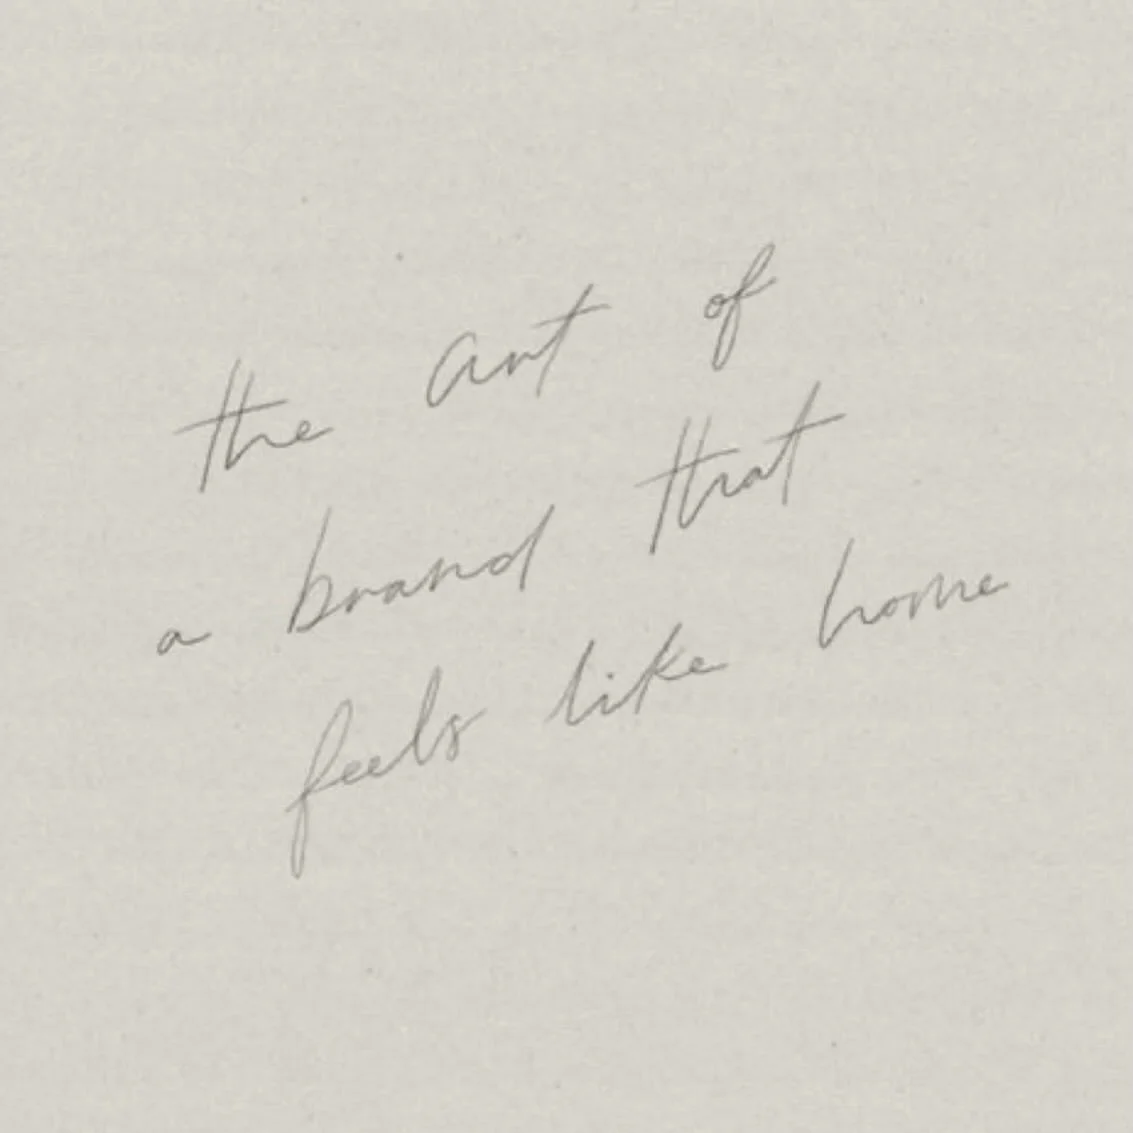 the art of
a brand that
feels like home